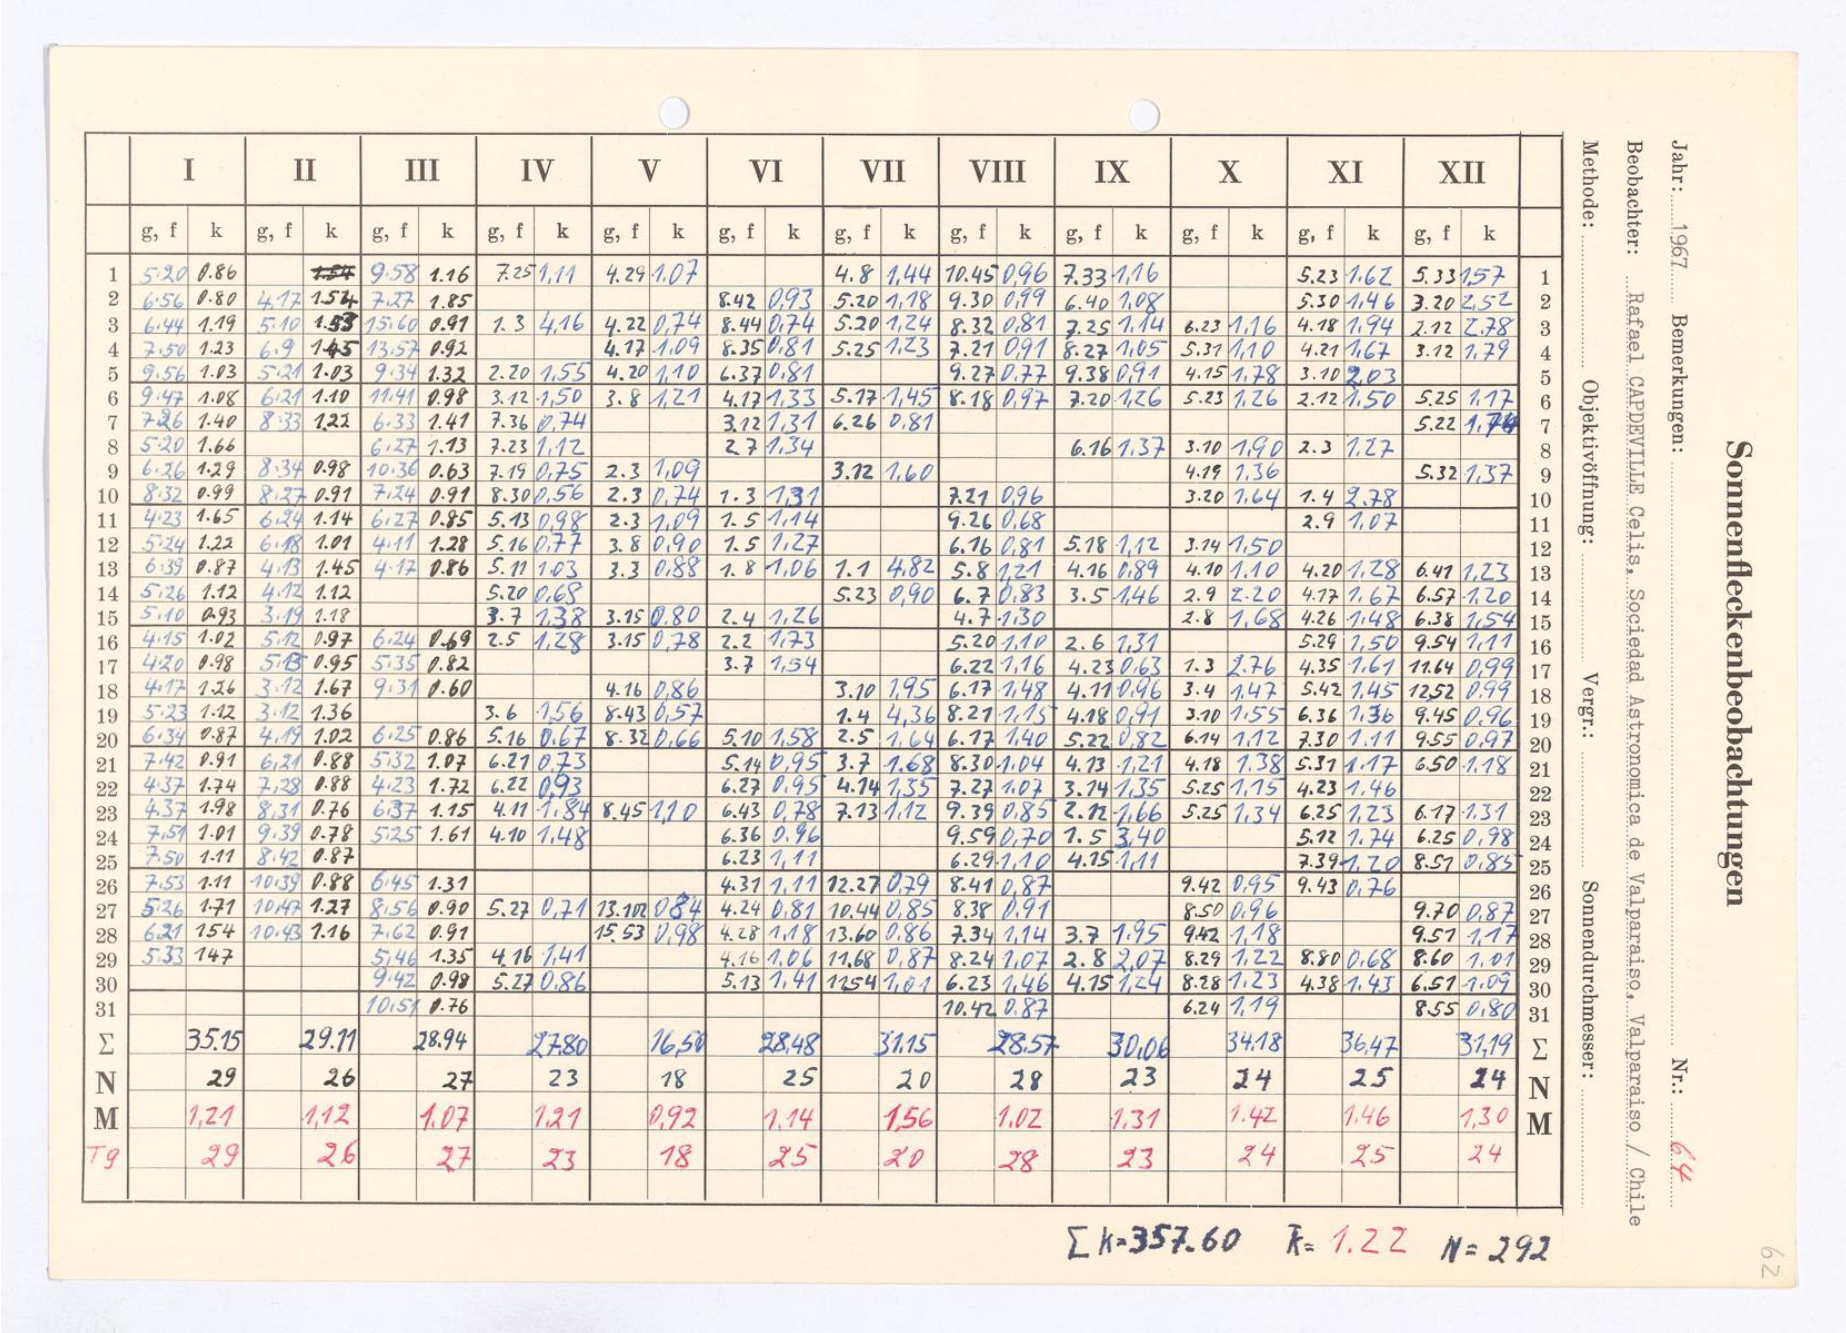 Sonnenfleckenbeobachtungen
Jahr: 1967 Bemerkungen: Nr.: 64
Beobachter: Rafael CAPDEVILLE Celis, Sociedad Astronomica de Valparaiso, Valparaiso / Chile
Methode: Objektivöffnung: Vergr.: Sonnendurchmesser:
I II III IV V VI VII VIII IX X XI XII
g, f k g, f k g, f k g, f k g, f k g, f k g, f k g, f k g, f k g, f k g, f k g, f k
1 5.20 0.86 1.54 9.58 1.16 7.25 1,11 4.29 1.07 4.8 1,44 10.45 0,96 7.33 1,16 5.23 1.62 5.33 1,57 1
2 6.56 0.80 4.17 1.54 7.27 1.85 8.42 0,93 5.20 1,18 9.30 0,99 6.40 1,08 5.30 1,46 3.20 2,52 2
3 6.44 1.19 5.10 1.53 15.60 0.91 1.3 4,16 4.22 0,74 8.44 0,74 5.20 1,24 8.32 0,81 7.25 1,14 6.23 1,16 4.18 1,94 2.12 2.78 3
4 7.50 1.23 6.9 1.45 13.57 0.92 4.17 1,09 8.35 0,81 5.25 1,23 7.21 0,91 8.27 1,05 5.31 1,10 4.21 1,67 3.12 1,79 4
5 9.56 1.03 5.21 1.03 9.34 1.32 2.20 1,55 4.20 1,10 6.37 0,81 9.27 0,77 9.38 0,91 4.15 1,78 3.10 2,03 5
6 9.47 1.08 6.21 1.10 11.41 0.98 3.12 1,50 3.8 1,21 4.17 1,33 5.17 1,45 8.18 0,97 7.20 1,26 5.23 1.26 2.12 1,50 5.25 1.17 6
7 7.26 1.40 8.33 1.22 6.33 1.41 7.36 0,74 3.12 1,31 6.26 0,81 5.22 7
8 5.20 1.66 6.27 1.13 7.23 1,12 2.7 1,34 6.16 1,37 3.10 1,90 2.3 1,27 8
9 6.26 1.29 8.34 0.98 10.36 0.63 7.19 0,75 2.3 1,09 3.12 1,60 4.19 1,36 5.32 1,37 9
10 8.32 0.99 8.27 0.91 7.24 0.91 8.30 0,56 2.3 0,74 1.3 1,31 7.21 0,96 3.20 1,64 1.4 2.78 10
11 4.23 1.65 6.24 1.14 6.27 0.85 5.13 0,98 2.3 1,09 1.5 1,14 9.26 0,68 2.9 1,07 11
12 5.24 1.22 6.18 1.01 4.11 1.28 5.16 0,77 3.8 0,90 1.5 1,27 6.16 0,81 5.18 1,12 3.14 1,50 12
13 6.39 0.87 4.13 1.45 4.17 0.86 5.11 1,03 3.3 0,88 1.8 1,06 1.1 4,82 5.8 1,21 4.16 0,89 4.10 1,10 4.20 1,28 6.41 1,23 13
14 5.26 1.12 4.12 1.12 5.20 0,68 5.23 0,90 6.7 0,83 3.5 1,46 2.9 2.20 4.17 1,67 6.57 1,20 14
15 5.10 0.93 3.19 1.18 3.7 1,38 3.15 0.80 2.4 1,26 4.7 1,30 2.8 1,68 4.26 1,48 6.38 1,54 15
16 4.15 1.02 5.12 0.97 6.24 0.69 2.5 1,28 3.15 0,78 2.2 1,73 5.20 1,10 2.6 1,31 5.29 1,50 9.54 1,11 16
17 4.20 0.98 5.13 0.95 5.35 0.82 3.7 1,54 6.22 1,16 4.23 0,63 1.3 2.76 4.35 1,61 11.64 0,99 17
18 4.17 1.26 3.12 1.67 9.31 0.60 4.16 0,86 3.10 1,95 6.17 1,48 4.11 0,96 3.4 1,47 5.42 1,45 1252 0.99 18
19 5.23 1.12 3.12 1.36 3.6 1,56 8.43 0,57 1.4 4,36 8.21 1,15 4.18 0,91 3.10 1,55 6.36 1,36 9.45 0,96 19
20 6.34 0.87 4.19 1.02 6.25 0.86 5.16 0,67 8.32 0,66 5.10 1,58 2.5 1,64 6.17 1,40 5.22 0,82 6.14 1,12 7.30 1.11 9.55 0,97 20
21 7.42 0.91 6.21 0.88 5.32 1.07 6.21 0,73 5.14 0,95 3.7 1,68 8.30 1.04 4.13 1,21 4.18 1.38 5.31 1.17 6.50 1.18 21
22 4.37 1.74 7.28 0.88 4.23 1.72 6.22 0,93 6.27 0,95 4.14 1,35 7.27 1,07 3.14 1,35 5.25 1,15 4.23 1.46 22
23 4.37 1.98 8.31 0.76 6.37 1.15 4.11 1,84 8.45 1,10 6.43 0,78 7.13 1,12 9.39 0,85 2.12 1,66 5.25 1,34 6.25 1,23 6.17 1.31 23
24 7.51 1.01 9.39 0.78 5.25 1.61 4.10 1,48 6.36 0,96 9.59 0,70 1.5 3,40 5.12 1.74 6.25 0,98 24
25 7.50 1.11 8.42 0.87 6.23 1,11 6.29 1,10 4.15 1,11 7.39 1,20 8.51 0,85 25
26 7.53 1.11 10.39 0.88 6.45 1.31 4.31 1,11 12.27 0,79 8.41 0,87 9.42 0,95 9.43 0,76 26
27 5.26 1.71 10.47 1.27 8.56 0.90 5.27 0,71 13.102 0,84 4.24 0,81 10.44 0,85 8.38 0.91 8.50 0,96 9.70 0,87 27
28 6.21 154 10.43 1.16 7.62 0.91 15.53 0,98 4.28 1,18 13.60 0,86 7.34 1,14 3.7 1,95 9.42 1,18 9.51 1,17 28
29 5.33 147 5.46 1.35 4.16 1,41 4.16 1,06 11.68 0,87 8.24 1,07 2.8 2,07 8.29 1,22 8.80 0,68 8.60 1.01 29
30 9.42 0.98 5.27 0,86 5.13 1,41 1254 1,01 6.23 1,46 4.15 1,24 8.28 1,23 4.38 1,43 6.51 1.09 30
31 10.51 0.76 10.42 0.87 6.24 1,19 8.55 0,80 31
Σ 35.15 29.11 28.94 27.80 16,50 28,48 31.15 28.57 30,06 34.18 36,47 31,19 Σ
N 29 26 27 23 18 25 20 28 23 24 25 24 N
M 1,21 1,12 1.07 1,21 0,92 1.14 1,56 1.02 1.31 1.42 1.46 1,30 M
Tg 29 26 27 23 18 25 20 28 23 24 25 24
Σ k=357.60 k̄= 1.22 N = 292
62